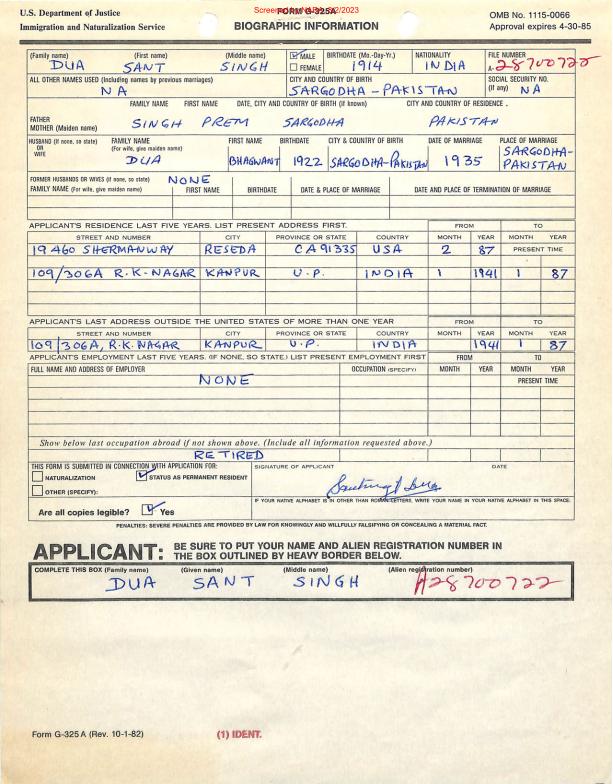 U.S. Department of Justice
Immigration and Naturalization Service
FORM G-325A
BIOGRAPHIC INFORMATION
OMB No. 1115-0066
Approval expires 4-30-85
(Family name) (First name) (Middle name) MALE FEMALE BIRTHDATE (Mo.-Day-Yr.) NATIONALITY FILE NUMBER
DUA SANT SINGH 1914 INDIA A-28700722
ALL OTHER NAMES USED (Including names by previous marriages) CITY AND COUNTRY OF BIRTH SOCIAL SECURITY NO. (If any)
NA SARGODHA-PAKISTAN NA
FAMILY NAME FIRST NAME DATE, CITY AND COUNTRY OF BIRTH (If known) CITY AND COUNTRY OF RESIDENCE.
FATHER
MOTHER (Maiden name)
SINGH PREM SARGODHA PAKISTAN
HUSBAND (If none, so state) OR WIFE FAMILY NAME (For wife, give maiden name) FIRST NAME BIRTHDATE CITY & COUNTRY OF BIRTH DATE OF MARRIAGE PLACE OF MARRIAGE
DUA BHAGWANT 1922 SARGODHA-PAKISTAN 1935 SARGODHA-PAKISTAN
FORMER HUSBANDS OR WIVES (If none, so state) NONE
FAMILY NAME (For wife, give maiden name) FIRST NAME BIRTHDATE DATE & PLACE OF MARRIAGE DATE AND PLACE OF TERMINATION OF MARRIAGE
APPLICANT'S RESIDENCE LAST FIVE YEARS. LIST PRESENT ADDRESS FIRST. FROM TO
STREET AND NUMBER CITY PROVINCE OR STATE COUNTRY MONTH YEAR MONTH YEAR
19460 SHERMANWAY RESEDA CA 91335 USA 2 87 PRESENT TIME
109/306A R.K-NAGAR KANPUR U.P. INDIA 1 1941 1 87
APPLICANT'S LAST ADDRESS OUTSIDE THE UNITED STATES OF MORE THAN ONE YEAR FROM TO
STREET AND NUMBER CITY PROVINCE OR STATE COUNTRY MONTH YEAR MONTH YEAR
109/306A, R.K.NAGAR KANPUR U.P. INDIA 1941 1 87
APPLICANT'S EMPLOYMENT LAST FIVE YEARS. (IF NONE, SO STATE.) LIST PRESENT EMPLOYMENT FIRST FROM TO
FULL NAME AND ADDRESS OF EMPLOYER OCCUPATION (SPECIFY) MONTH YEAR MONTH YEAR
NONE PRESENT TIME
Show below last occupation abroad if not shown above. (Include all information requested above.)
RETIRED
THIS FORM IS SUBMITTED IN CONNECTION WITH APPLICATION FOR: SIGNATURE OF APPLICANT DATE
NATURALIZATION STATUS AS PERMANENT RESIDENT
OTHER (SPECIFY):
IF YOUR NATIVE ALPHABET IS IN OTHER THAN ROMAN LETTERS, WRITE YOUR NAME IN YOUR NATIVE ALPHABET IN THIS SPACE.
Are all copies legible? Yes
PENALTIES: SEVERE PENALTIES ARE PROVIDED BY LAW FOR KNOWINGLY AND WILLFULLY FALSIFYING OR CONCEALING A MATERIAL FACT.
APPLICANT: BE SURE TO PUT YOUR NAME AND ALIEN REGISTRATION NUMBER IN
THE BOX OUTLINED BY HEAVY BORDER BELOW.
COMPLETE THIS BOX (Family name) (Given name) (Middle name) (Alien registration number)
DUA SANT SINGH A28700722
Form G-325 A (Rev. 10-1-82) (1) IDENT.